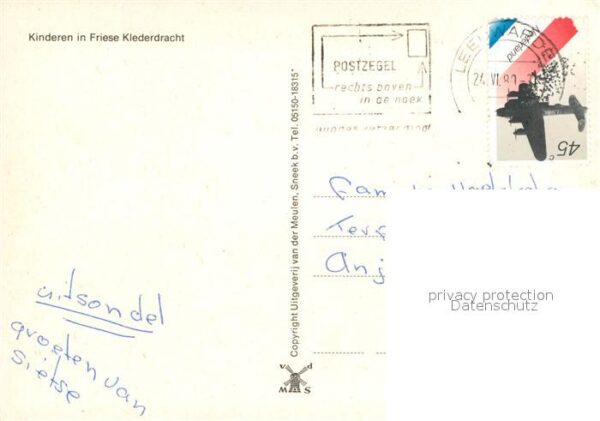 Kinderen in Friese Klederdracht
POSTZEGEL
rechts boven
in de hoek
LEEUWARDEN
24.VI.80
45
uitsondel
groeten van
Sietse
Copyright Uitgeverij van der Meulen, Sneek b.v. Tel. 05150-18315*
v d
M S
Fam
Anj
privacy protection
Datenschutz